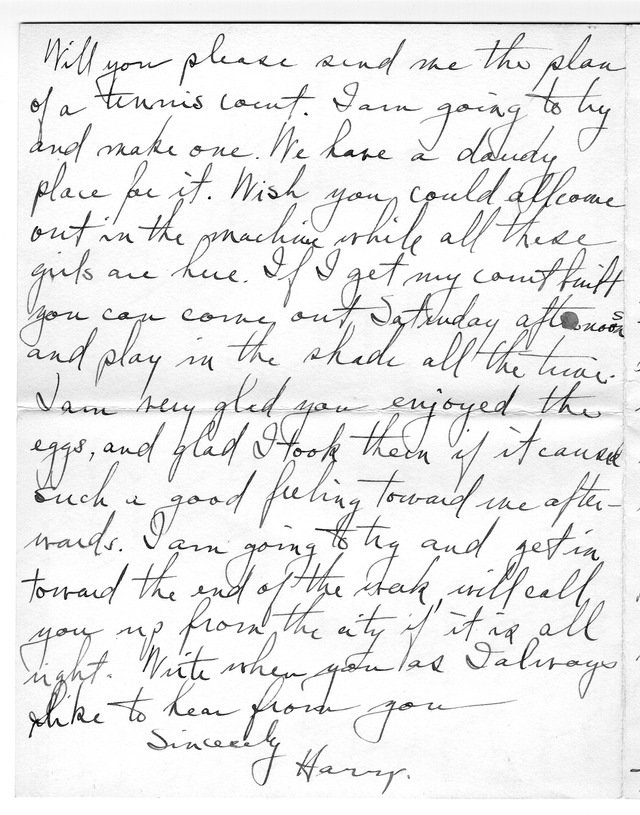 Will you please send me the plan
of a tennis court. I am going to try
and make one. We have a dandy
place for it. Wish you could all come
out in the machine while all these
girls are here. If I get my court built
you can come out Saturday afternoons
and play in the shade all the time.
I am very glad you enjoyed the
eggs, and glad I took them if it caused
such a good feeling toward me after-
wards. I am going to try and get in
toward the end of the week, will call
you up from the city if it is all
right. Write when you as I always
like to hear from you
Sincerely
Harry.